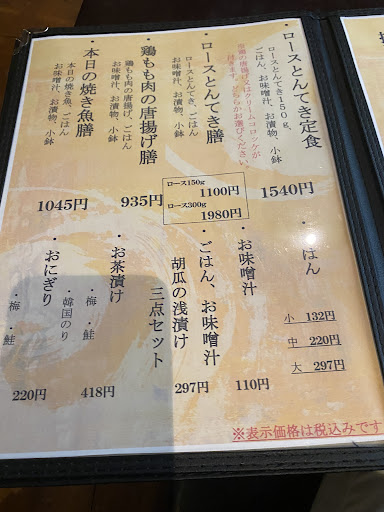 ・ロースとんてき定食
ロースとんてき150g、
ごはん、お味噌汁、お漬物、小鉢
若鶏の唐揚げ又はクリームコロッケが
付きます。どちらかお選びください。
1540円
・ロースとんてき膳
ロースとんてき、ごはん
お味噌汁、お漬物、小鉢
ロース150g
1100円
ロース300g
1980円
・鶏もも肉の唐揚げ膳
鶏もも肉の唐揚げ、ごはん
お味噌汁、お漬物、小鉢
935円
・本日の焼き魚膳
本日の焼き魚、ごはん
お味噌汁、お漬物、小鉢
1045円
・ごはん
小 132円
中 220円
大 297円
・お味噌汁
110円
・ごはん、お味噌汁
胡瓜の浅漬け
三点セット
297円
・お茶漬け
・梅 ・鮭
418円
・おにぎり
・韓国のり
・梅 ・鮭
220円
※表示価格は税込みです